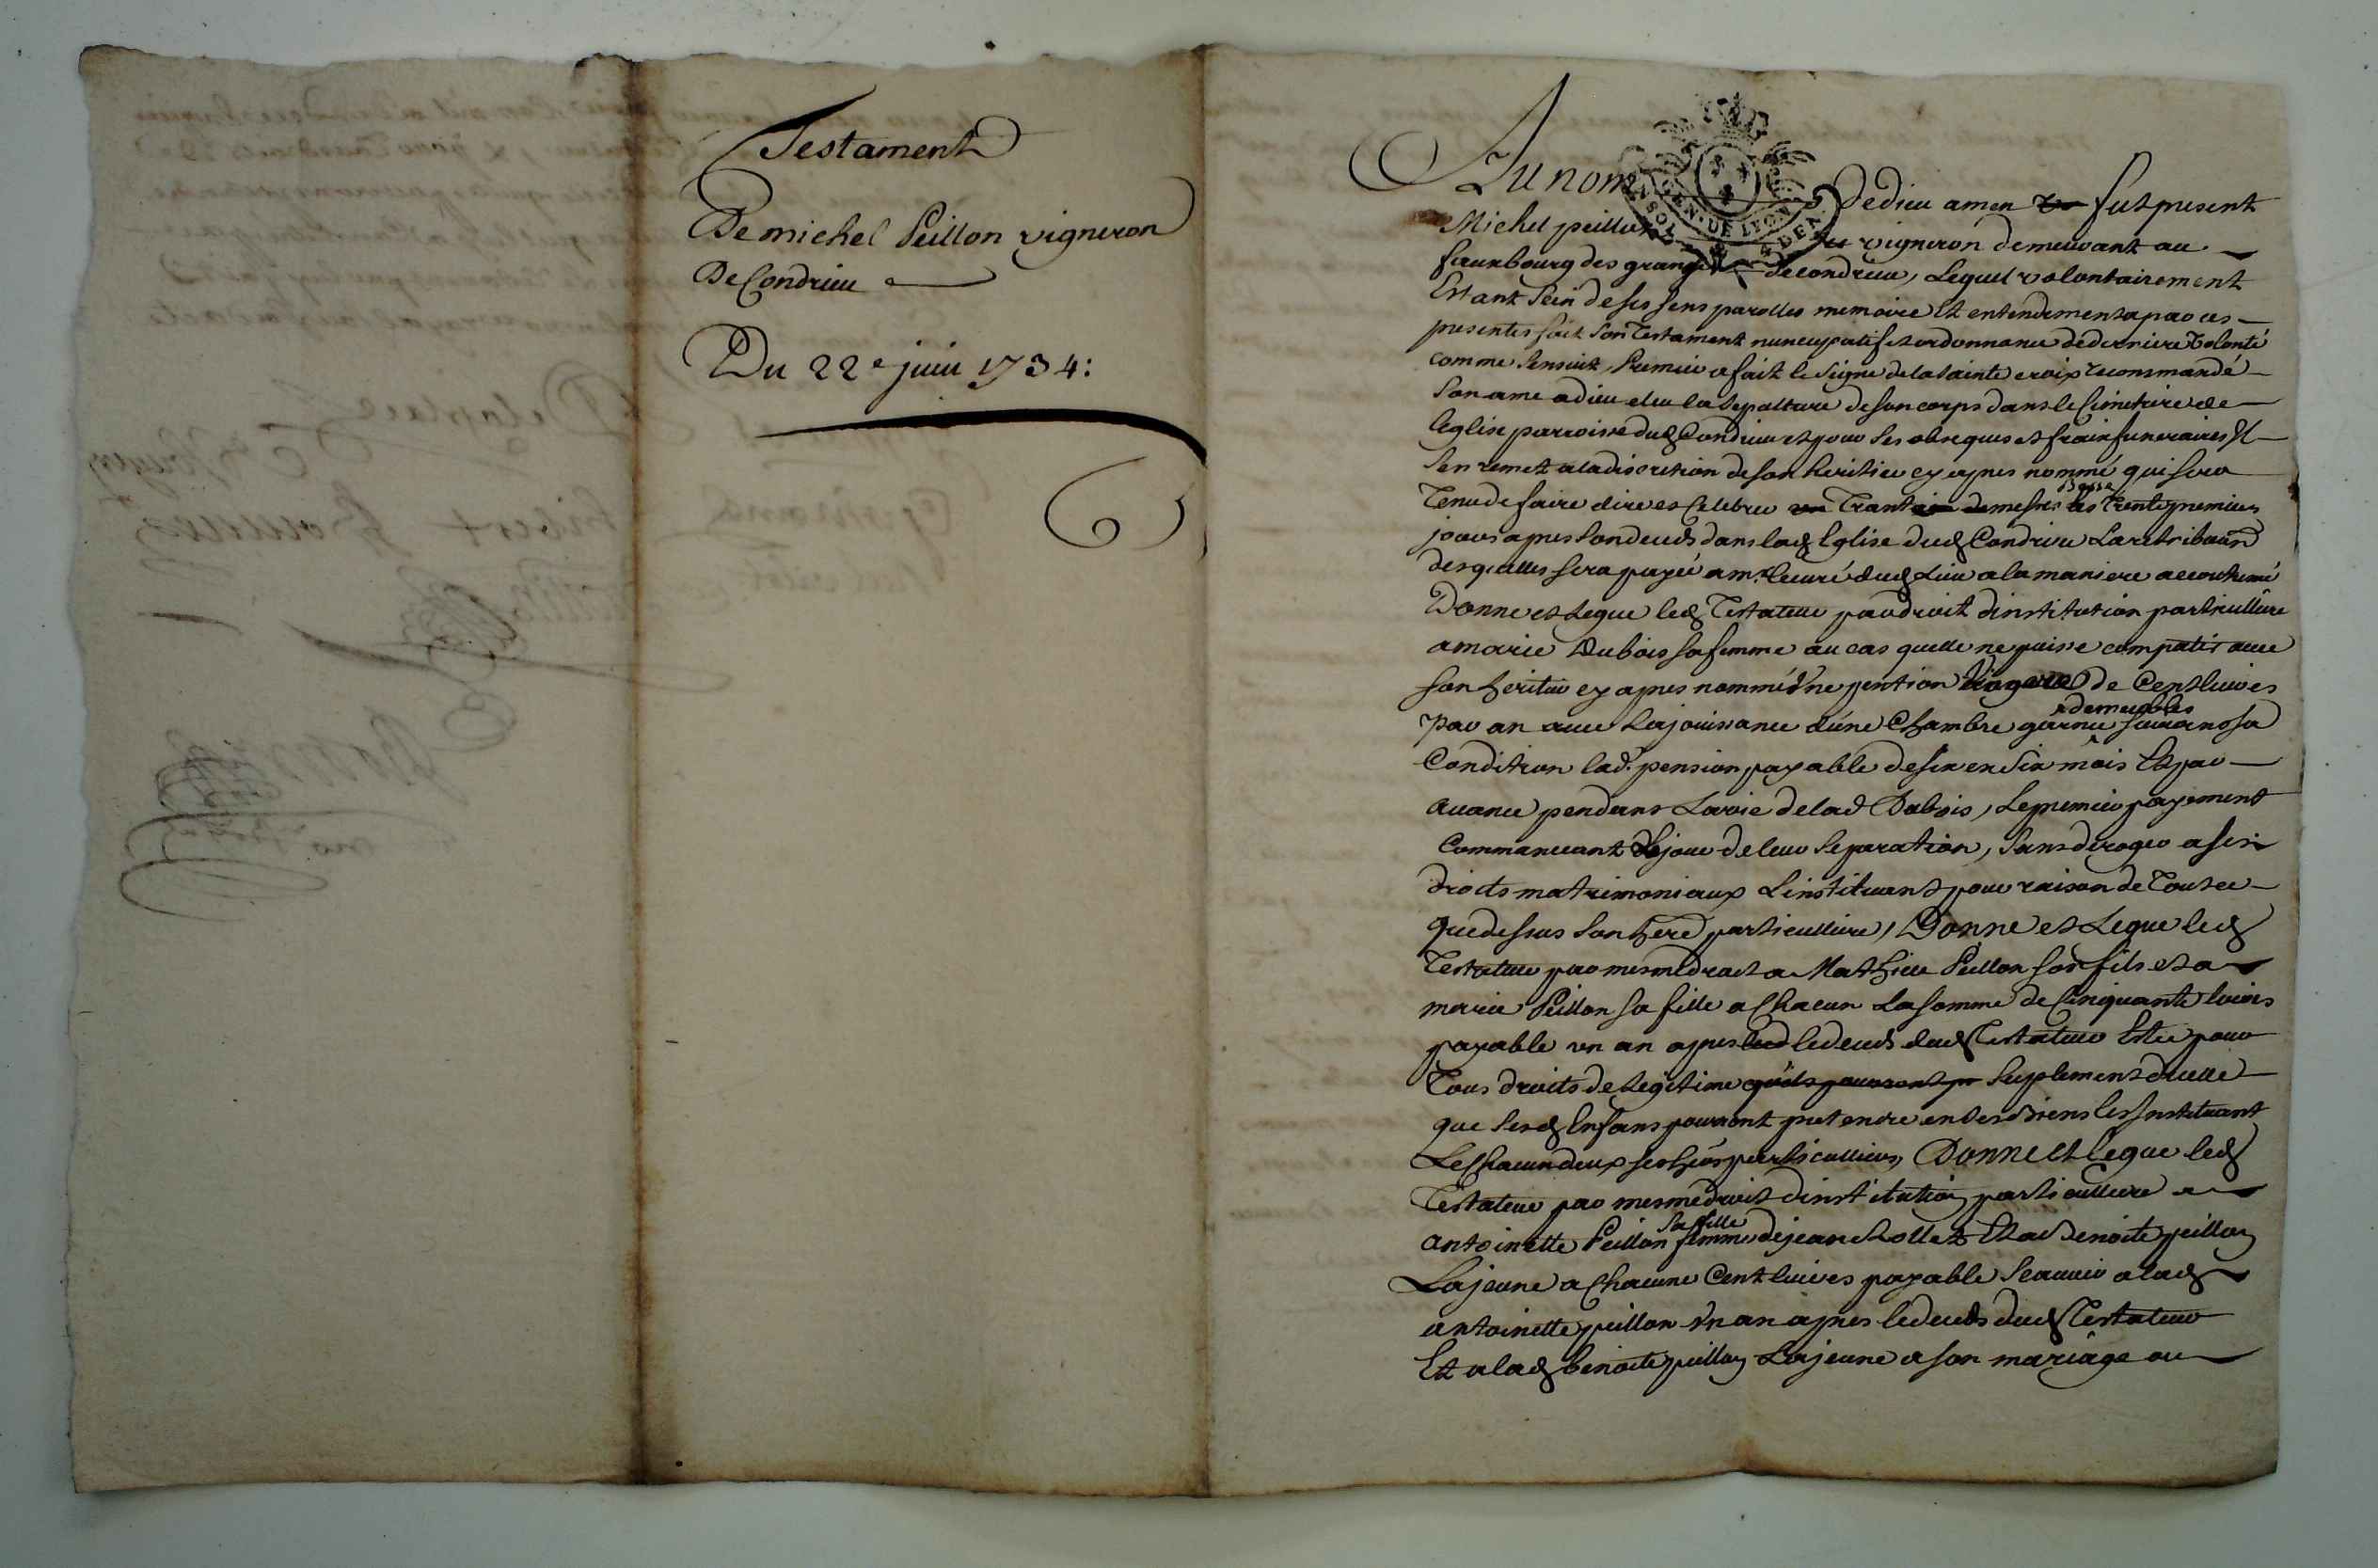 Testament
De michel Peillon vigneron
De Condrieu
Du 22e juin 1734:
Au nom De dieu amen fut present
GEN · DE LYON
Michel peillon vigneron demeurant au
fauxbourg des granges de condrieu, Lequel volontairement
Estant sein de ses sens parolles memoire Et entendement a par ces
presentes fait son Testament nuncupatif et ordonnance de derniere volonté
comme sensuit, Premier a fait le signe de la sainte croix recommandé
son ame a dieu eleu la sepulture de son corps dans le cimetiere de
leglise parroisse dud Condrieu et pour ses obseques et fraix funeraires Il
sen remet a la discretion de son heritier cy apres nommé qui sera
Tenu de faire dire et Celebrer Trante messes les Trente premiers
jours apres son deceds dans lad Eglise dud Condrieu La retribuon
desquelles sera payée a mr. le curé dud Lieu a la maniere accoutumé
Donne et legue led Testateur par droit dinstitution particulliere
a marie Dubois sa femme au cas quelle ne puisse compatir avec
son heritier cy apres nommé une pention viagere de Cent livres
par an avec La jouissance dune Chambre garnie de meubles suivant sa
Condition lad. pension payable de six en six mois Et par
avance pendant La vie de lad Dubois, Le premier payement
commancant le jour de leur separation, sans deroger a ses
droits matrimoniaux Linstituant pour raison de Tout ce
que dessus son here particulliere, Donne et Legue led
Testateur par mesme droit a Mathieu Peillon son fils et a
marie Peillon sa fille a Chacun La somme de Cinquante livres
payable un an apres led le deceds dud Testateur Et ce pour
Tous droits de Legitime quils pourront pr suplement dicelle
que sesd Enfans pourront pretendre en ses Biens les Instituant
Le Chacun deux ses hers particulliers, Donne Et legue led
Testateur par mesme droit dinstitution particulliere a
antoinette Peillon sa fille femme de jean Et a Benoite peillon
La jeune a Chacune Cent livres payable scavoir a lad
antoinette peillon un an apres le deceds dud Testateur
Et a lad benoite peillon La jeune a son mariage ou